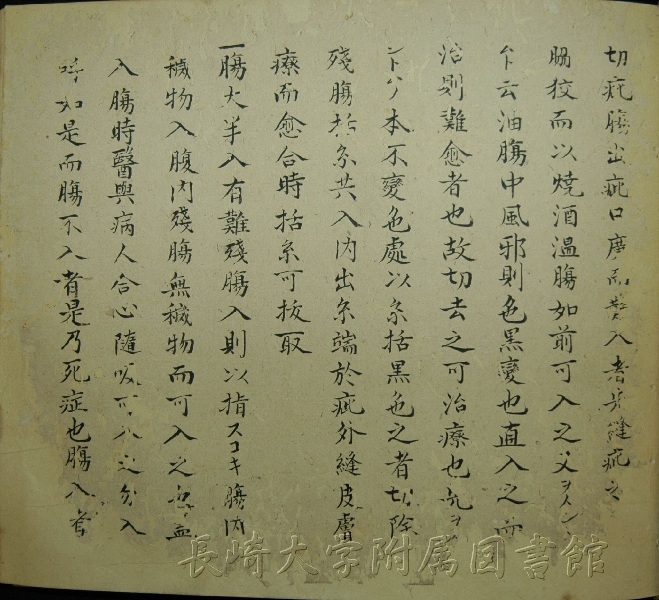 切疵腸出疵口廣而入者先縫疵之
狹而以焼酒温腸如前可入之又
云油腸中風邪則色黒變也直入之而
治則難愈者也故切去之可治療也
本不變色處以糸括黒色之者切除
殘腸括糸共入内出糸端於疵外縫皮膚
療而愈合時括糸可抜取
一腸大半入有難殘腸入則以指スコキ腸内
穢物入腹内殘腸無穢物而可入之也
入腸時醫與病人合心隨吸可入之勿入
呼如是而腸不入者是乃死症也腸入者
長崎大学附属図書館